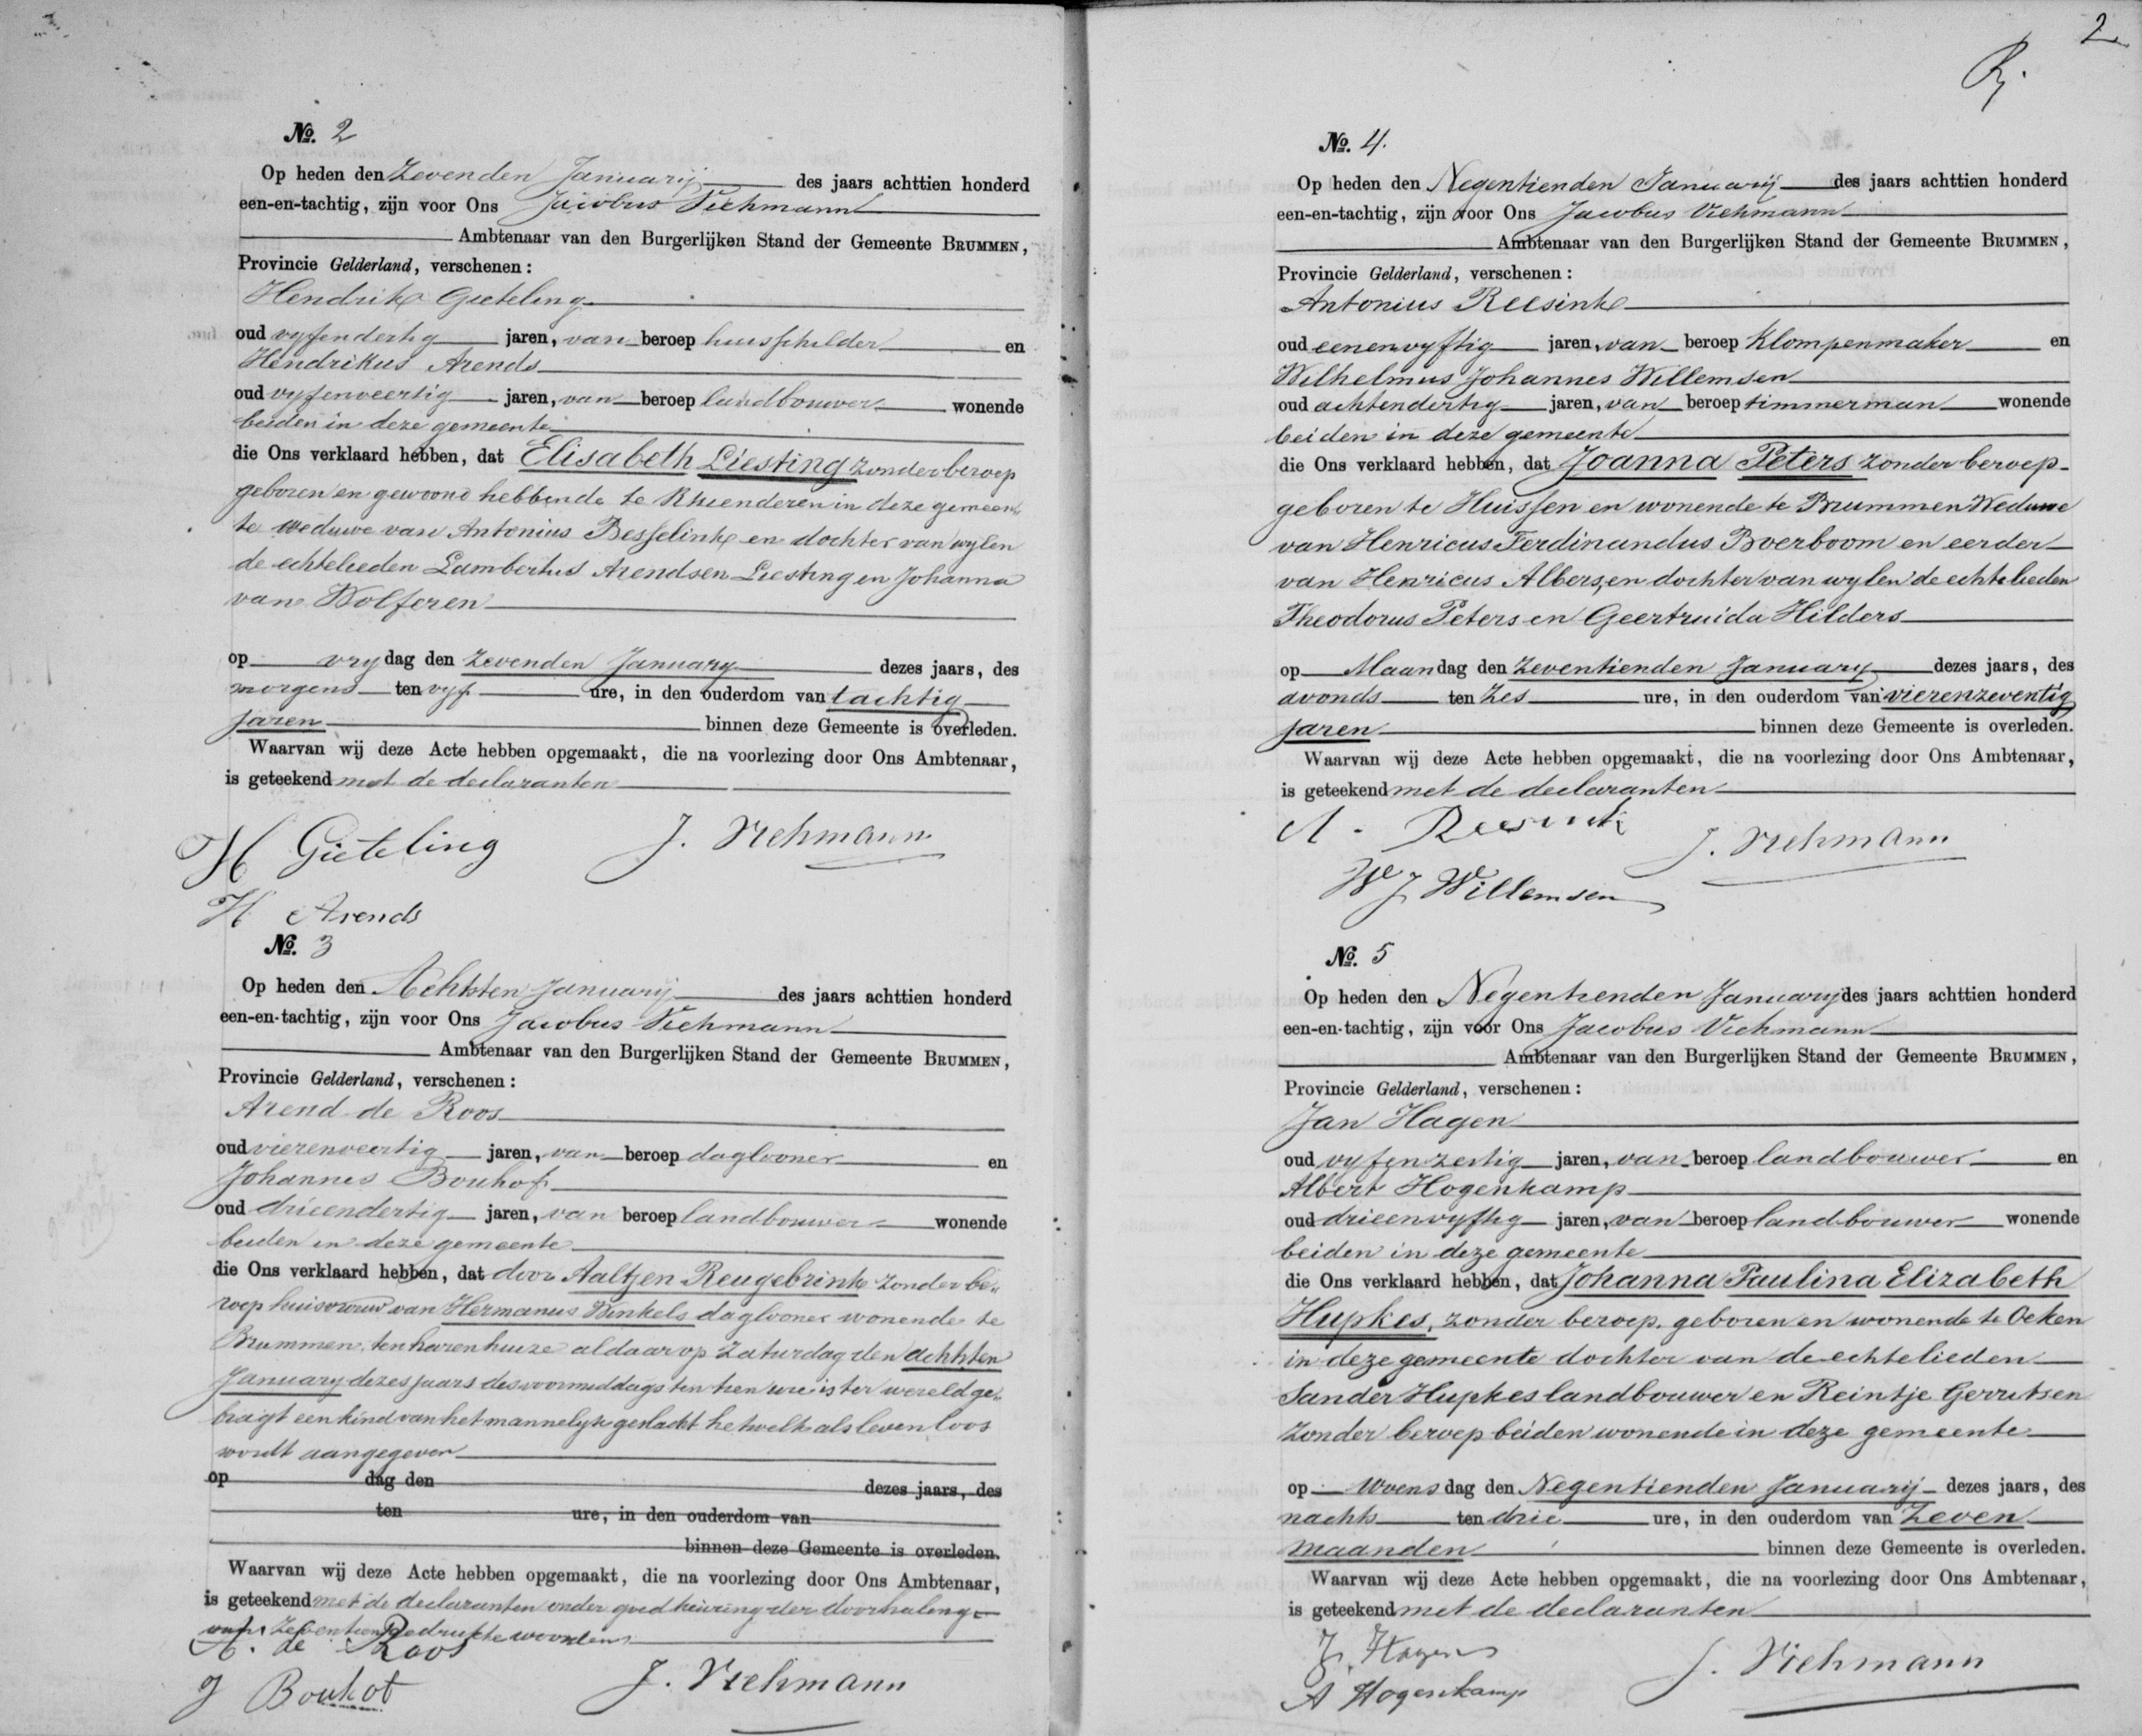 No. 2
Op heden den Zevenden Januarij des jaars achttien honderd
een-en-tachtig, zijn voor Ons Jacobus Viehmann
Ambtenaar van den Burgerlijken Stand der Gemeente BRUMMEN,
Provincie Gelderland, verschenen:
Hendrik Gieteling
oud vyfendertig jaren, van beroep huisschilder en
Hendrikus Arends
oud vyfenveertig jaren, van beroep landbouwer wonende
beiden in deze gemeente
die Ons verklaard hebben, dat Elisabeth Liesting zonder beroep
geboren en gewoond hebbende te Rhienderen in deze gemeen„
te weduwe van Antonius Besselink en dochter van wylen
de echtelieden Lambertus Arendsen Liesting en Johanna
van Wolferen
op vrydag den Zevenden January dezes jaars, des
morgens ten vyf ure, in den ouderdom van tachtig
jaren binnen deze Gemeente is overleden.
Waarvan wij deze Acte hebben opgemaakt, die na voorlezing door Ons Ambtenaar,
is geteekend met de declaranten
H Gieteling J. Viehmann
H Arends
No. 3
Op heden den Achtsten Januarij des jaars achttien honderd
een-en-tachtig, zijn voor Ons Jacobus Viehmann
Ambtenaar van den Burgerlijken Stand der Gemeente BRUMMEN,
Provincie Gelderland, verschenen:
Arend de Roos
oud vierenveertig jaren, van beroep daglooner en
Johannes Bouhof
oud drieendertig jaren, van beroep landbouwer wonende
beiden in deze gemeente
die Ons verklaard hebben, dat door Aaltjen Reugebrink zonder be„
roep huisvrouw van Hermanus Winkels daglooner wonende te
Brummen, ten haren huize aldaar op Zaturdag den achtsten
January dezes jaars des voormiddags ten tien ure is ter wereld ge„
bragt een kind van het mannelyk geslacht hetwelk als levenloos
wordt aangegeven
op dag den dezes jaars, des
ten ure, in den ouderdom van
binnen deze Gemeente is overleden.
Waarvan wij deze Acte hebben opgemaakt, die na voorlezing door Ons Ambtenaar,
is geteekend met de declaranten onder goedkeuring der doorhaling
van zeventien gedrukte woorden
A. de Roos
J Bouhof J. Viehmann
2
No. 4.
Op heden den Negentienden Januarij des jaars achttien honderd
een-en-tachtig, zijn voor Ons Jacobus Viehmann
Ambtenaar van den Burgerlijken Stand der Gemeente BRUMMEN,
Provincie Gelderland, verschenen:
Antonius Reesink
oud eenenvyftig jaren, van beroep Klompenmaker en
Wilhelmus Johannes Willemsen
oud achtendertig jaren, van beroep timmerman wonende
beiden in deze gemeente
die Ons verklaard hebben, dat Joanna Peters zonder beroep
geboren te Huissen en wonende te Brummen Weduwe
van Henricus Ferdinandus Boerboom en eerder
van Henricus Albers, en dochter van wylen de echtelieden
Theodorus Peters en Geertruida Hilders
op Maandag den Zeventienden January dezes jaars, des
avonds ten Zes ure, in den ouderdom van vierenzeventig
jaren binnen deze Gemeente is overleden.
Waarvan wij deze Acte hebben opgemaakt, die na voorlezing door Ons Ambtenaar,
is geteekend met de declaranten
A. Reesink J. Viehmann
W J Willemsen
No. 5
Op heden den Negentienden January des jaars achttien honderd
een-en-tachtig, zijn voor Ons Jacobus Viehmann
Ambtenaar van den Burgerlijken Stand der Gemeente BRUMMEN,
Provincie Gelderland, verschenen:
Jan Hagen
oud vyfenzestig jaren, van beroep landbouwer en
Albert Hogenkamp
oud drieenvyftig jaren, van beroep landbouwer wonende
beiden in deze gemeente
die Ons verklaard hebben, dat Johanna Paulina Elizabeth
Hupkes, zonder beroep, geboren en wonende te Oeken
in deze gemeente dochter van de echtelieden
Sander Hupkes landbouwer en Reintje Gerritsen
zonder beroep beiden wonende in deze gemeente
op Woensdag den Negentienden Januarij dezes jaars, des
nachts ten drie ure, in den ouderdom van Zeven
maanden binnen deze Gemeente is overleden.
Waarvan wij deze Acte hebben opgemaakt, die na voorlezing door Ons Ambtenaar,
is geteekend met de declaranten
J. Hagen
A Hogenkamp J. Viehmann